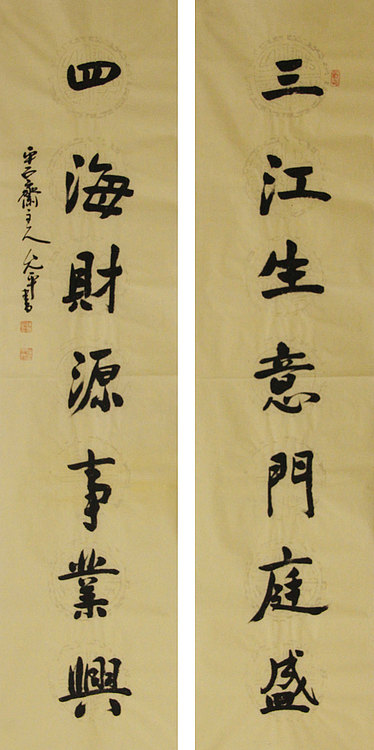 三江生意門庭盛
四海財源事業興
齋主人 平書